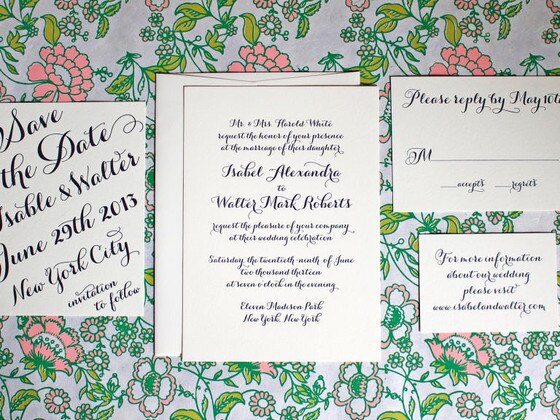 Save
the Date
Isable & Walter
June 29th 2013
New York City
invitation
to follow
Mr. & Mrs. Harold White
request the honor of your presence
at the marriage of their daughter
Isabel Alexandra
to
Walter Mark Roberts
request the pleasure of your company
at their wedding celebration
Saturday, the twentieth-ninth of June
two thousand thirteen
at seven o'clock in the evening
Eleven Madison Park
New York, New York
Please reply by May 10th
M
accepts regrets
For more information
about our wedding
please visit
www.isabelandwalter.com